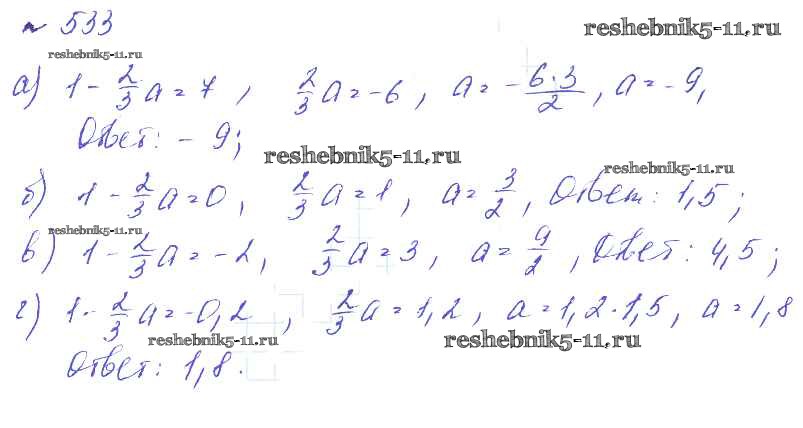 № 533
reshebnik5-11.ru
reshebnik5-11.ru
а) 1 - 2/3 a = 7, 2/3 a = -6, a = - 6·3/2, a = -9,
Ответ: -9;
reshebnik5-11.ru
reshebnik5-11.ru
б) 1 - 2/3 a = 0, 2/3 a = 1, a = 3/2, Ответ: 1,5;
reshebnik5-11.ru
в) 1 - 2/3 a = -2, 2/3 a = 3, a = 9/2, Ответ: 4,5;
г) 1 - 2/3 a = -0,2, 2/3 a = 1,2, a = 1,2·1,5, a = 1,8
reshebnik5-11.ru
reshebnik5-11.ru
Ответ: 1,8.